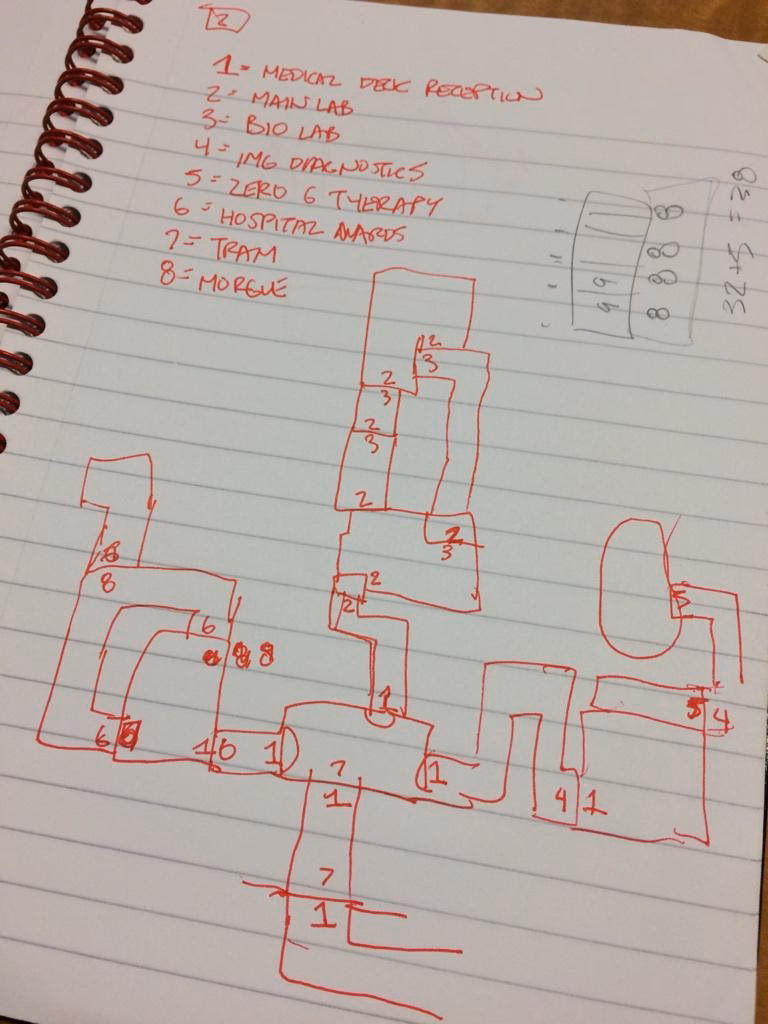 2
1= MEDICAL DECK RECEPTION
2= MAIN LAB
3= BIO LAB
4= IMG DIAGNOSTICS
5= ZERO G THERAPY
6= HOSPITAL WARDS
7= TRAM
8= MORGUE
8 8 8 8
32+5 = 38
2
3
2
3
2
3
2
2
3
2
2
8
6
8
6
1
6
1
1
7
1
1
4 1
5
5 4
7
1